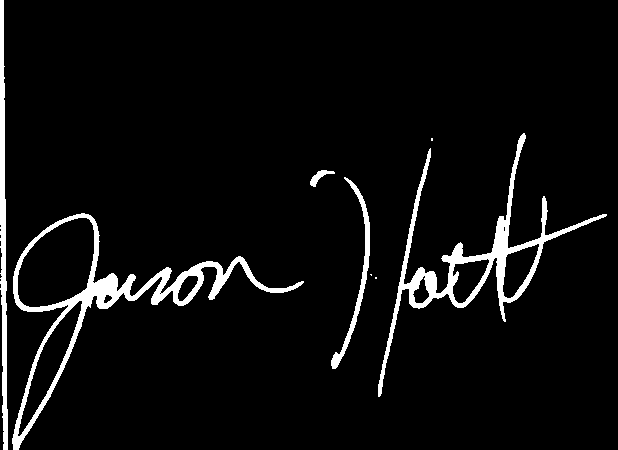 Jason Hott